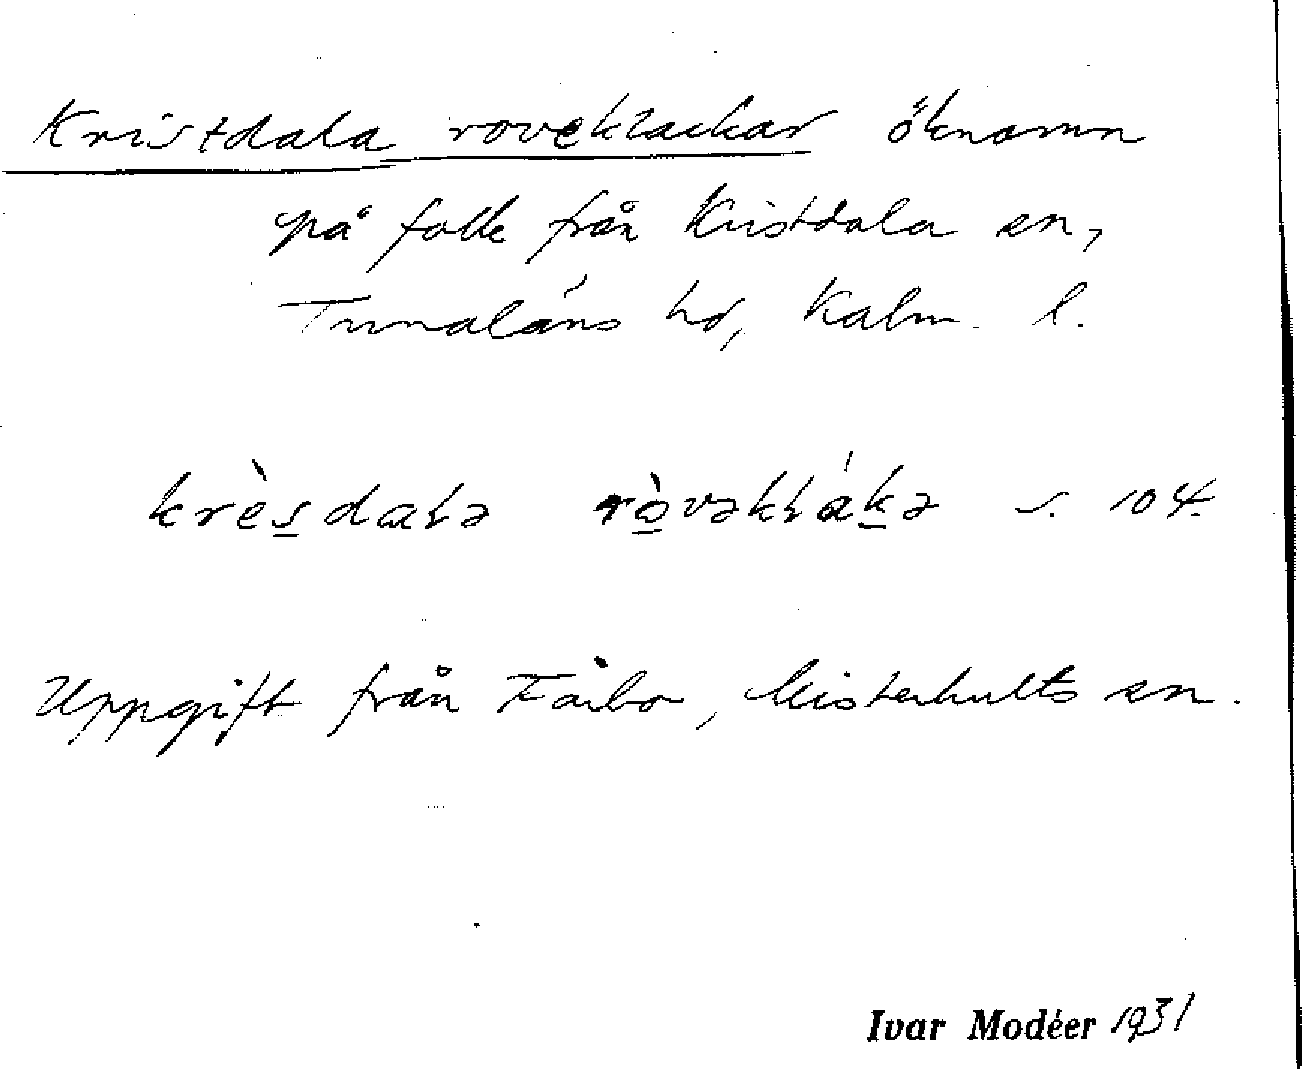 Kristdala roveklackar öknamn
på folk från Kristdala sn,
Tunaläns hd, Kalm. l.
krèsdaɫə ròvəkɫákə s. 104.
Uppgift från Fårbo, Misterhults sn.
Ivar Modéer 1931